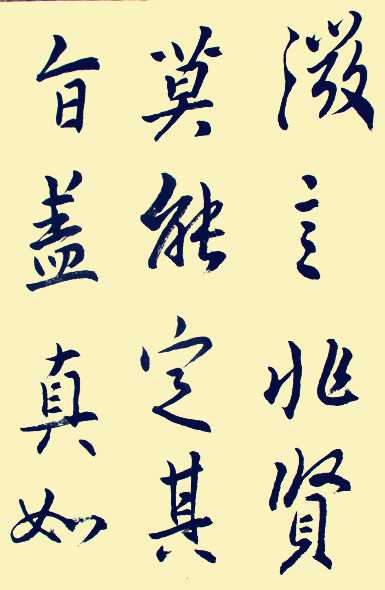 微言非賢
莫能定其
旨盖真如